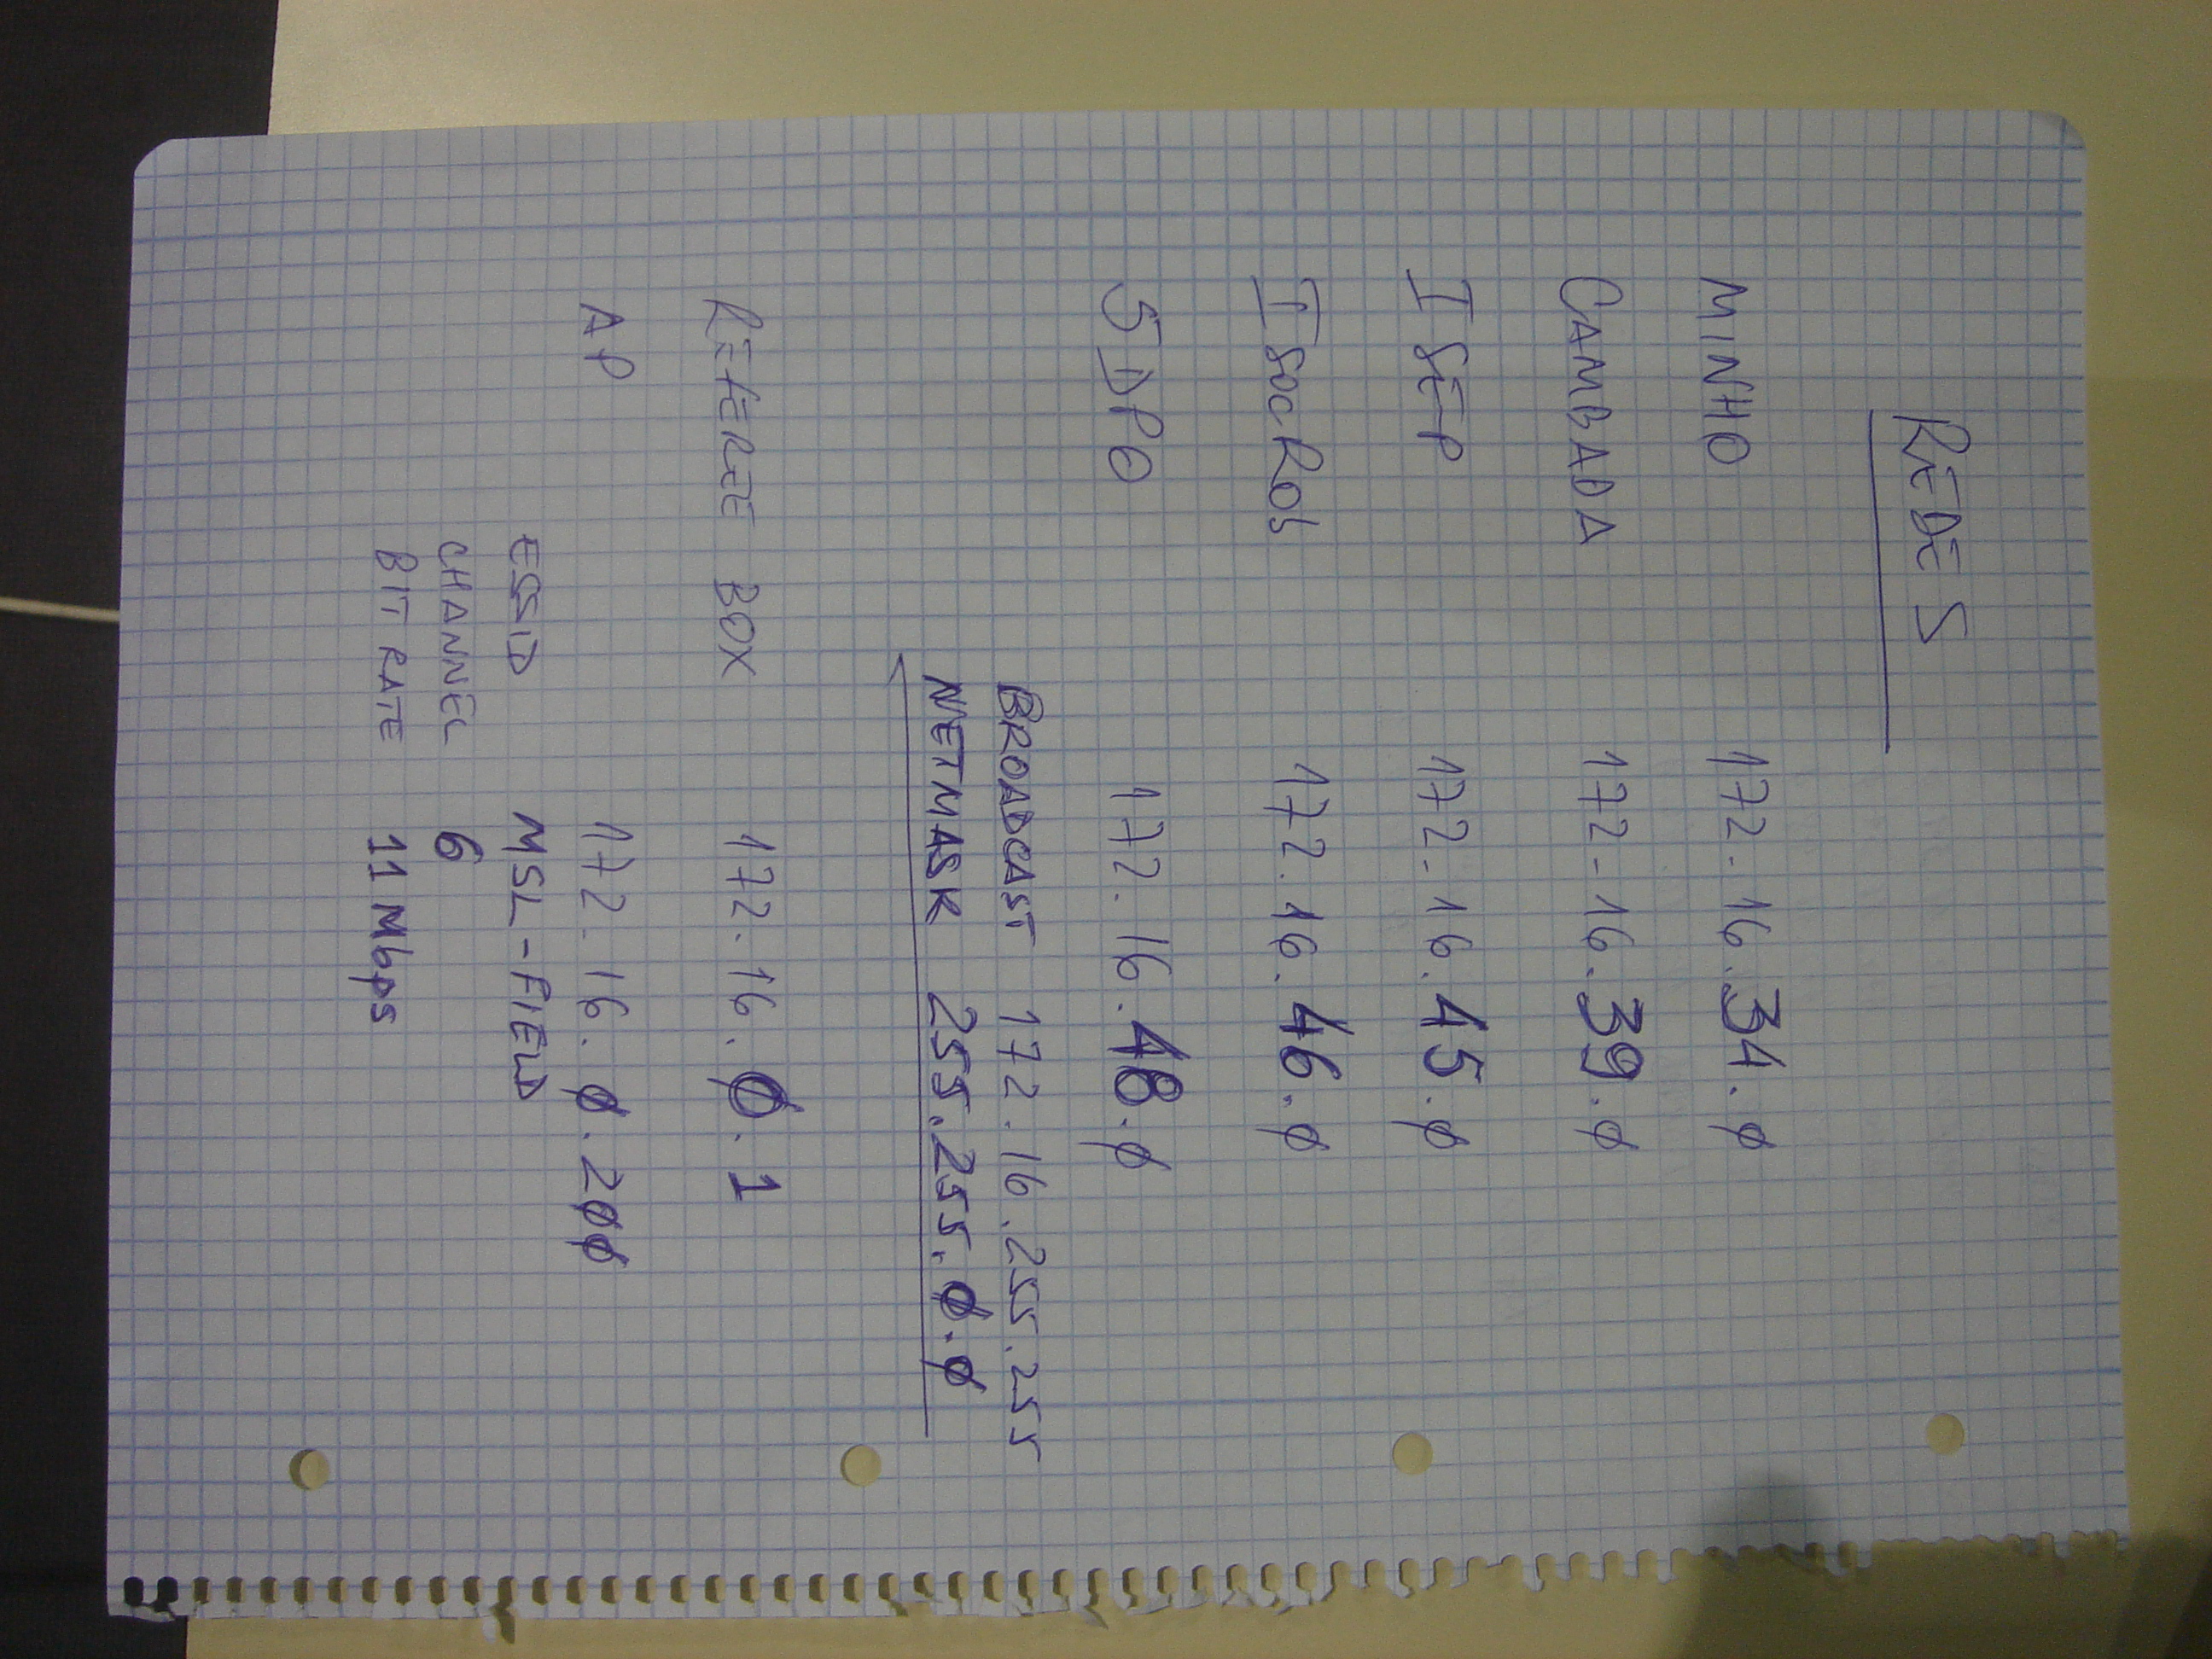 REDES
MINHO 172.16.34.0
CAMBADA 172.16.39.0
ISEP 172.16.45.0
ISocRob 172.16.46.0
5DPO 172.16.48.0
BROADCAST 172.16.255.255
NETMASK 255.255.0.0
REFEREE BOX 172.16.0.1
AP 172.16.0.200
ESSID MSL-FIELD
CHANNEL 6
BIT RATE 11 Mbps